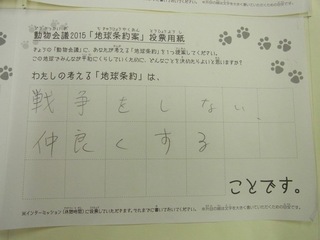 動物会議2015「地球条約案」投票用紙
きょうの「動物会議」に、あなたが考える「地球条約」を1つ提案してください。
この地球でみんなが平和にくらしていくために、どんなことを決めたらよいと思いますか?
わたしの考える「地球条約」は、
戦争をしない、
仲良くする
ことです。